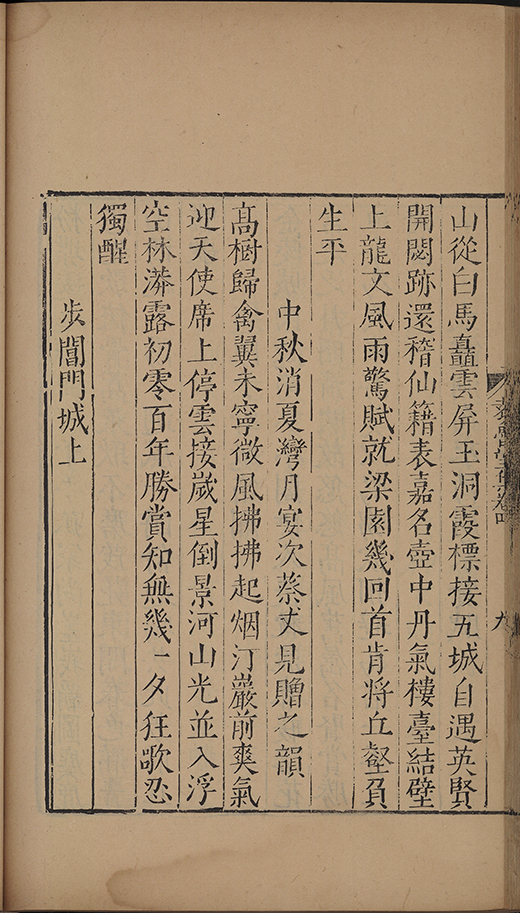 山從白馬矗雲屏玉洞霞標接五城自遇英賢
開閟跡還稽仙籍表嘉名壺中丹氣樓臺結壁
上龍文風雨驚賦就梁園幾回首肯將丘壑負
生平
中秋消夏灣月宴次蔡丈見贈之韻
高樹歸禽翼未寧微風拂拂起烟汀巖前爽氣
迎天使席上停雲接歲星倒景河山光並入浮
空林漭露初零百年勝賞知無幾一夕狂歌忍
獨醒
步閶門城上